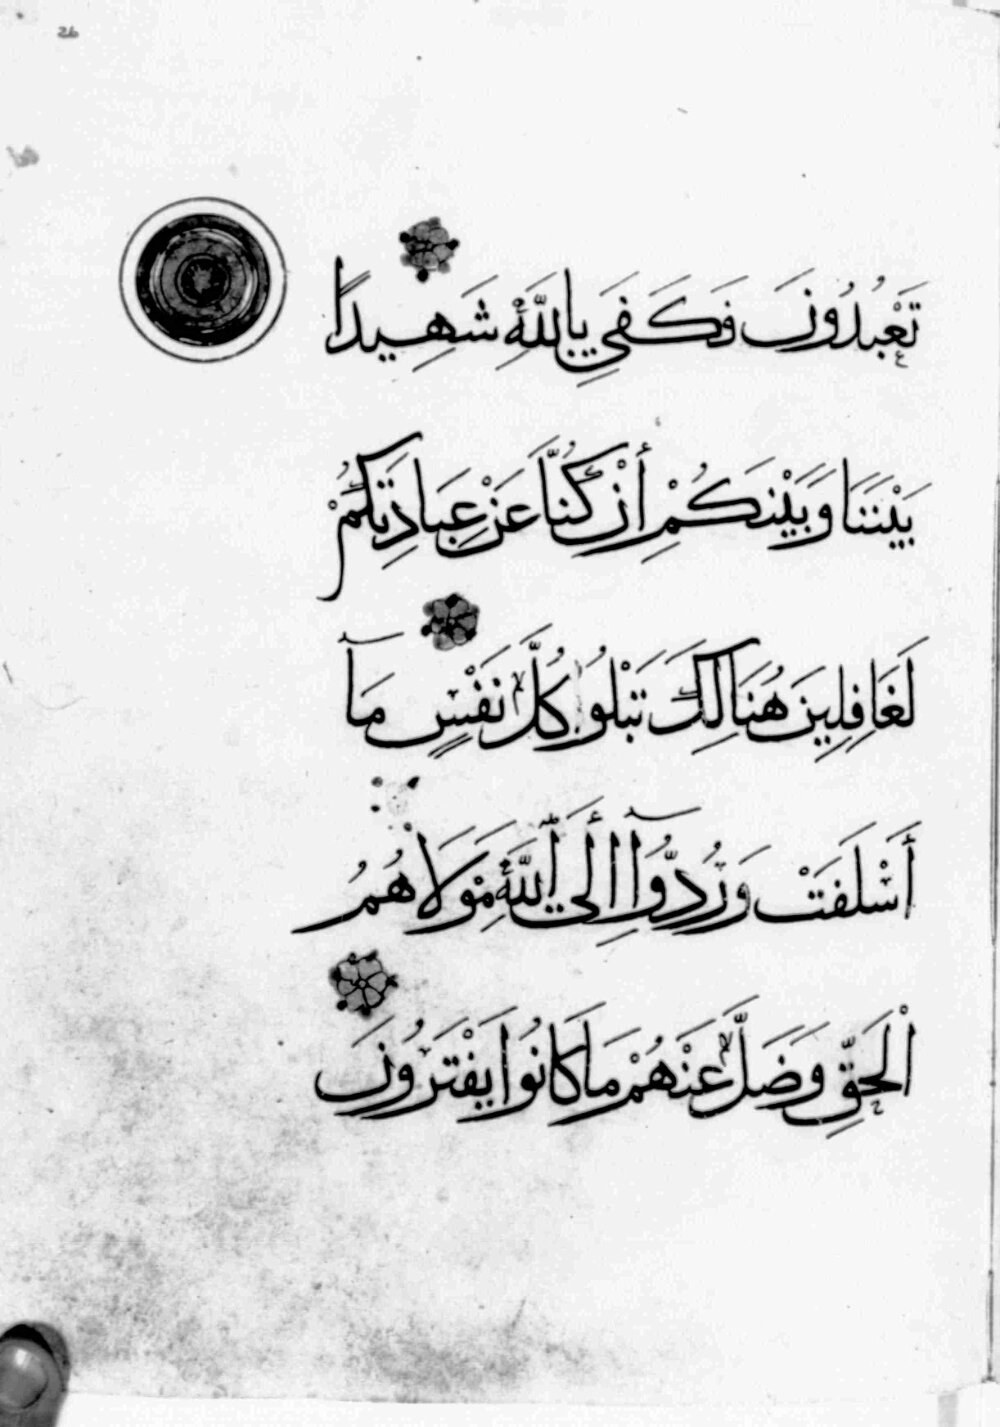 26
تَعْبُدُونَ فَكَفَى بِاللَّهِ شَهِيدًا
بَيْنَنَا وَبَيْنَكُمْ إِنْ كُنَّا عَنْ عِبَادَتِكُمْ
لَغَافِلِينَ هُنَالِكَ تَبْلُوا كُلُّ نَفْسٍ مَآ
أَسْلَفَتْ وَرُدُّوٓا إِلَى اللَّهِ مَوْلَاهُمُ
الْحَقِّ وَضَلَّ عَنْهُمْ مَا كَانُوا يَفْتَرُونَ